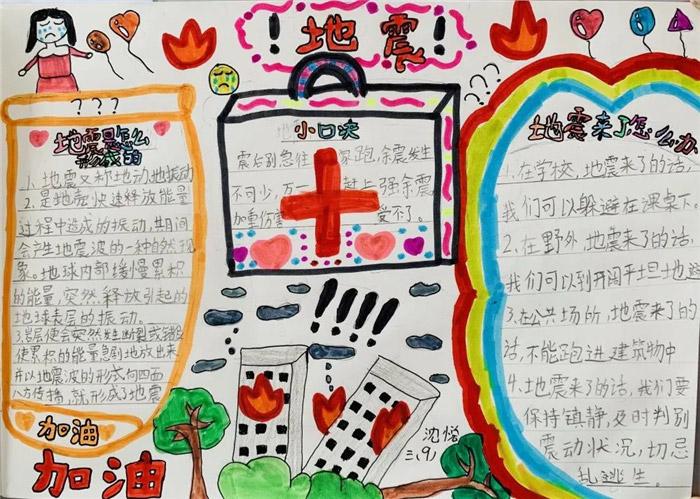 地震
？？？
地震是怎么
形成的
1.地震又称地动、地振动
2.是地壳快速释放能量
过程中造成的振动,其期间
会产生地震波的一种自然现
象。地球内部缓慢累积
的能量,突然释放引起的
地球表层的振动。
使累积的能量急剧地放出来,
并以地震波的形式向四面
八方传播,就形成了地震
加油
加油
小口决
震后别急往家跑,余震发生
不可少,万一赶上强余震
加重伤害受不了。
！！！！
沈悦
三(9)
???
地震来了怎么办
1.在学校,地震来了的话,
我们可以躲避在课桌下。
2.在野外,地震来了的话
我们可以到开阔平坦土地避
3.在公共场所,地震来了的
话,不能跑进建筑物中
4.地震来了的话,我们要
保持镇静,及时判别
震动状况,切忌
乱逃生。